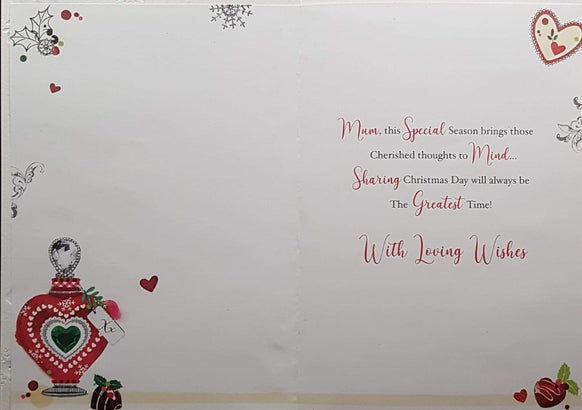 Mum, this Special Season brings those
Cherished thoughts to Mind...
Sharing Christmas Day will always be
The Greatest Time!
With Loving Wishes